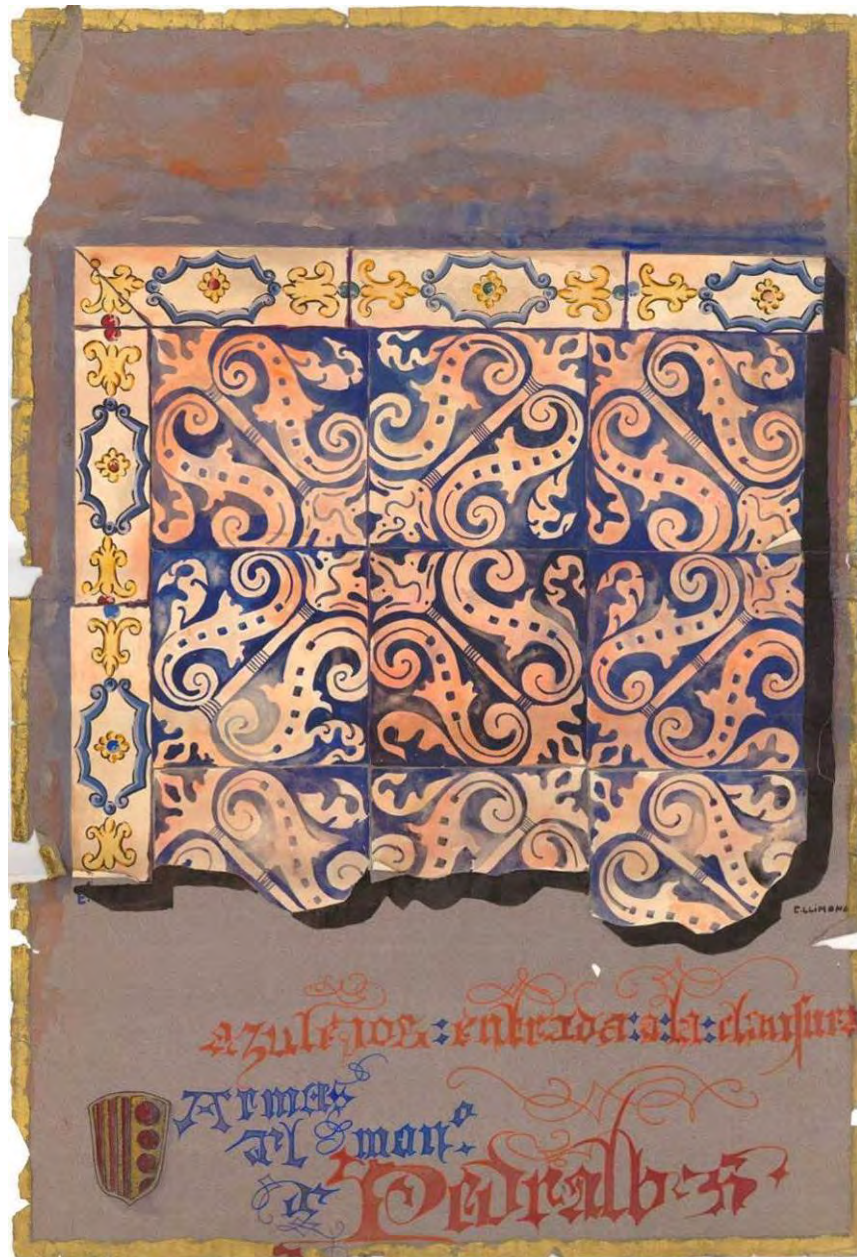 E.
C.LLIMONA
azulejos:entrada:a:la:clausura
Armas
d'l mon.º
d'
Pedralbes.